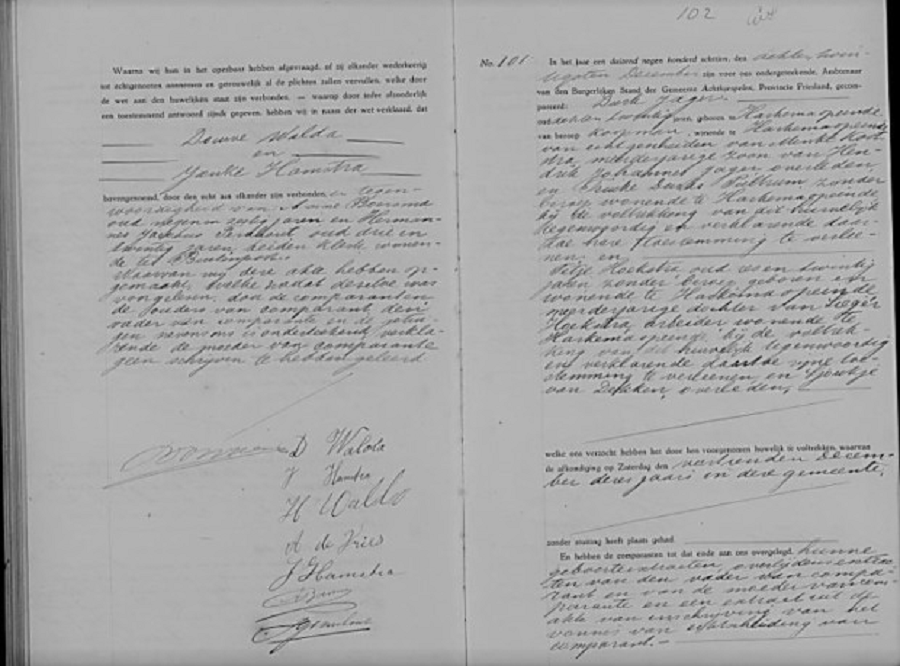 Waarna wij hun in het openbaar hebben afgevraagd, of zij elkander wederkeerig
tot echtgenooten aannemen en getrouwelijk al de plichten zullen vervullen, welke door
de wet aan den huwelijken staat zijn verbonden, — waarop door ieder afzonderlijk
een toestemmend antwoord zijnde gegeven, hebben wij in naam der wet verklaard, dat
Douwe Walda
en
Jouke Hamstra
bovengenoemd, door den echt aan elkander zijn verbonden, in tegen-
woordigheid van
oud negen en zestig jaren en Herman-
nes oud drie en
twintig jaren, beiden klerk wonen-
de te Buitenpost.
Waarvan wij deze akte hebben op-
gemaakt, welke nadat dezelve was
voorgelezen, door de comparanten
de ouders van comparant, den
vader van comparante en de
gen nevens ons is onderteekend, verkla-
rende de moeder van comparante
geen schrijven te hebben geleerd
D Walda
J Hamstra
H Walda
A de Vries
J Hamstra
102
No. 101
In het jaar een duizend negen honderd achttien, den achten twin-
tigsten December zijn voor ons ondergeteekende, Ambtenaar
van den Burgerlijken Stand der Gemeente Achtkarspelen, Provincie Friesland, gecom-
pareerd: Durk Jager
oud acht en twintig jaren, geboren te Harkemaopeinde
van beroep koopman, wonende te Harkemaopeinde
van echtgescheiden van Hoek-
stra, meerderjarige zoon van Hen-
drik Johannes Jager overleden
en zonder
beroep wonende te Harkemaopeinde
bij de voltrekking van dit huwelijk
tegenwoordig en verklarende daar-
toe hare toestemming te verlee-
nen, en
Hoekstra oud een en twintig
jaren zonder beroep geboren en
wonende te Harkemaopeinde
meerderjarige dochter van
Hoekstra, arbeider wonende te
Harkemaopeinde, bij de voltrek-
king van dit huwelijk tegenwoordig
en verklarende daartoe zijne toe-
stemming te verleenen en
van Dekken, overleden,
welke ons verzocht hebben het door hen voorgenomen huwelijk te voltrekken, waarvan
de afkondiging op Zaterdag den veertienden Decem-
ber dezes jaars in deze gemeente,
zonder stuiting heeft plaats gehad.
En hebben de comparanten tot dat einde aan ons overgelegd, hunne
geboorteextracten, overlijdensextrac-
ten van den vader van compa-
rant en van de moeder van com-
parante en een extract uit de
akte van inschrijving van het
vonnis van echtscheiding van
comparant.